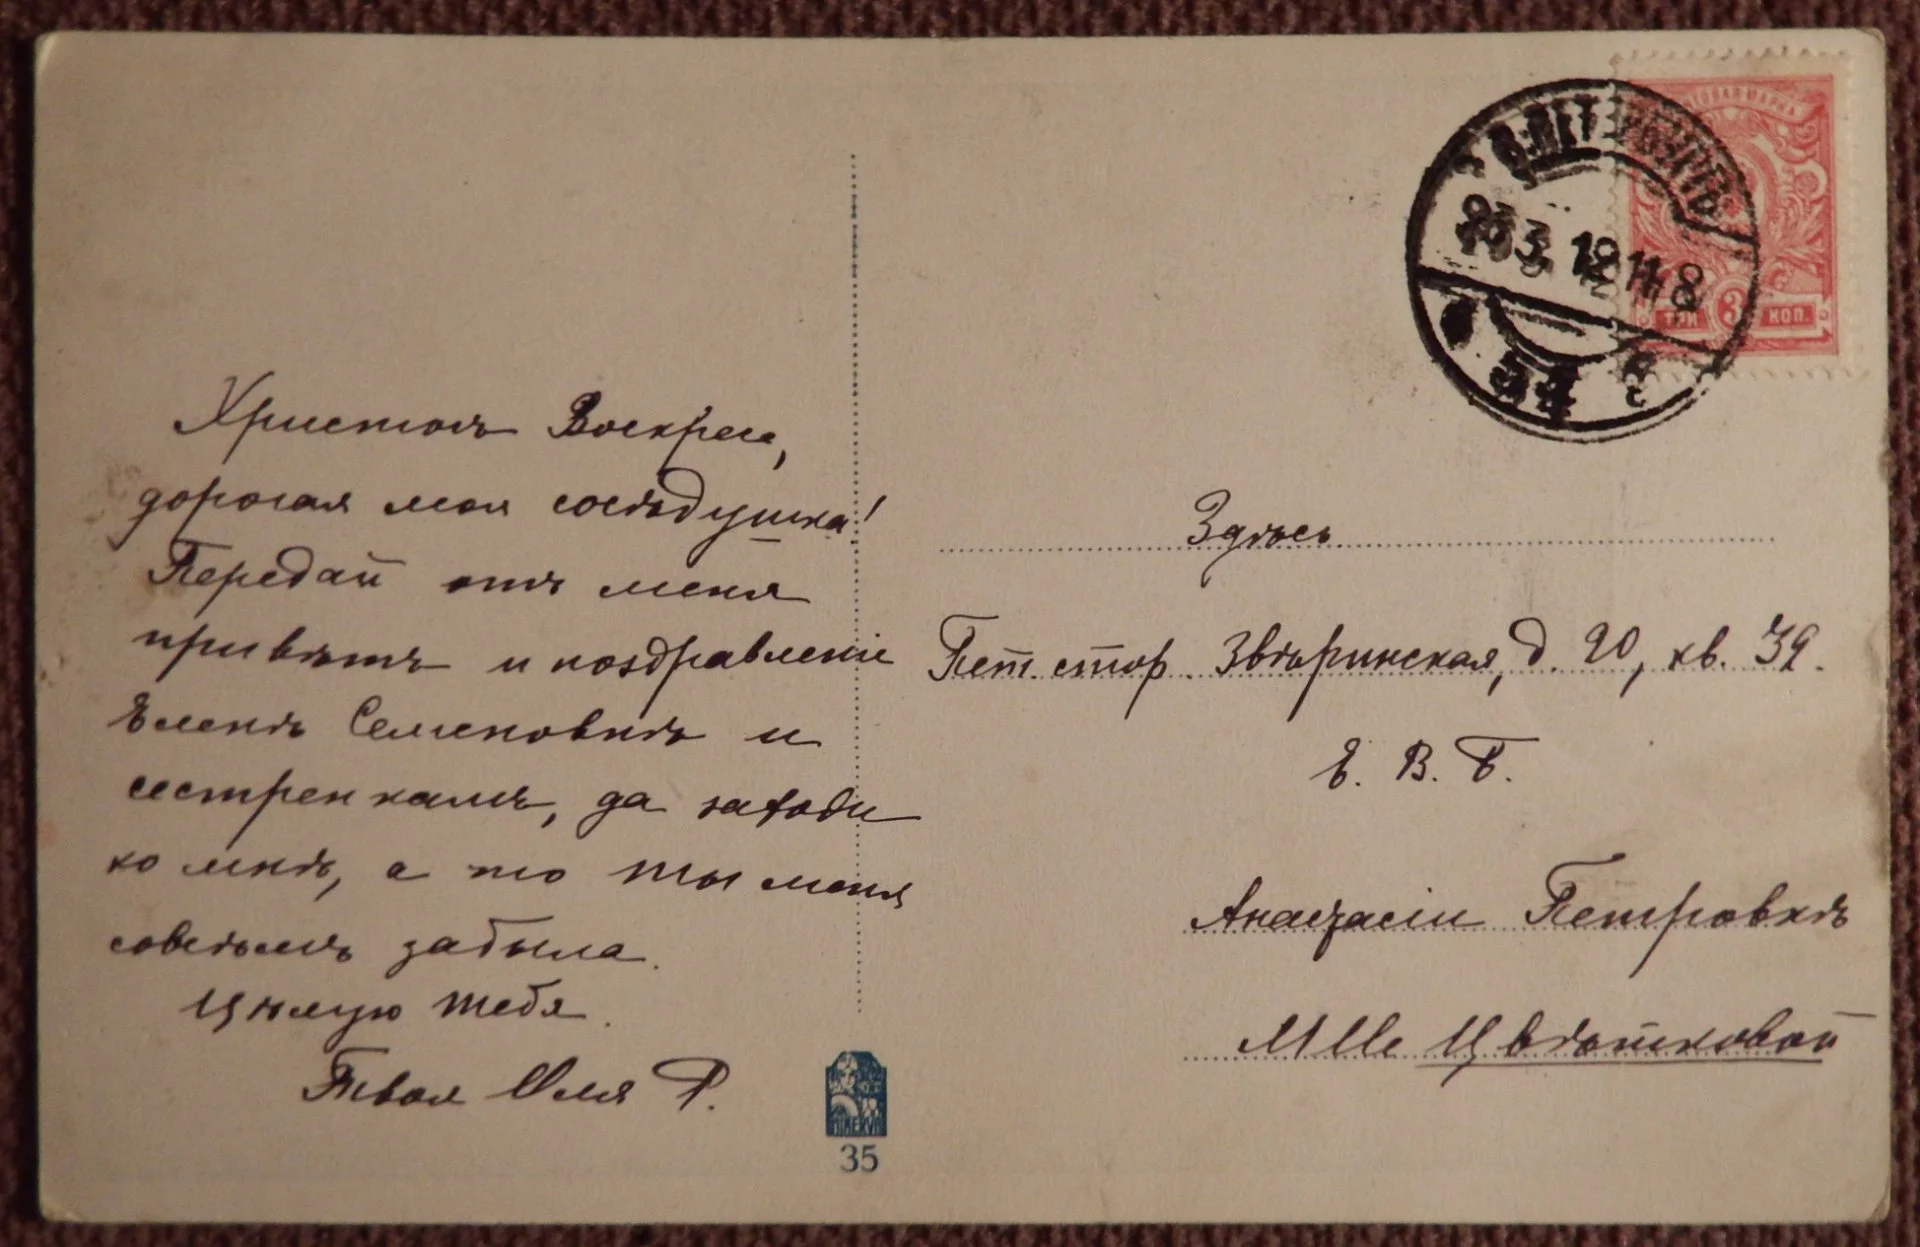 Христосъ Воскресе,
дорогая моя сосѣдушка!
Передай отъ меня
привѣтъ и поздравленіе
Еленѣ Семеновнѣ и
сестренкамъ, да заходи
ко мнѣ, а то ты меня
совсѣмъ забыла.
Цѣлую тебя.
Твоя Оля Р.
MINERVA
35
С.ПЕТЕРБУРГЪ
ПОЧТОВАЯ МАРКА
ТРИ 3 КОП.
Здѣсь
Пет. стор. Звѣринская, д. 20, кв. 39.
Е. В. Б.
Анастасіи Петровнѣ
Mlle Цвѣтковой